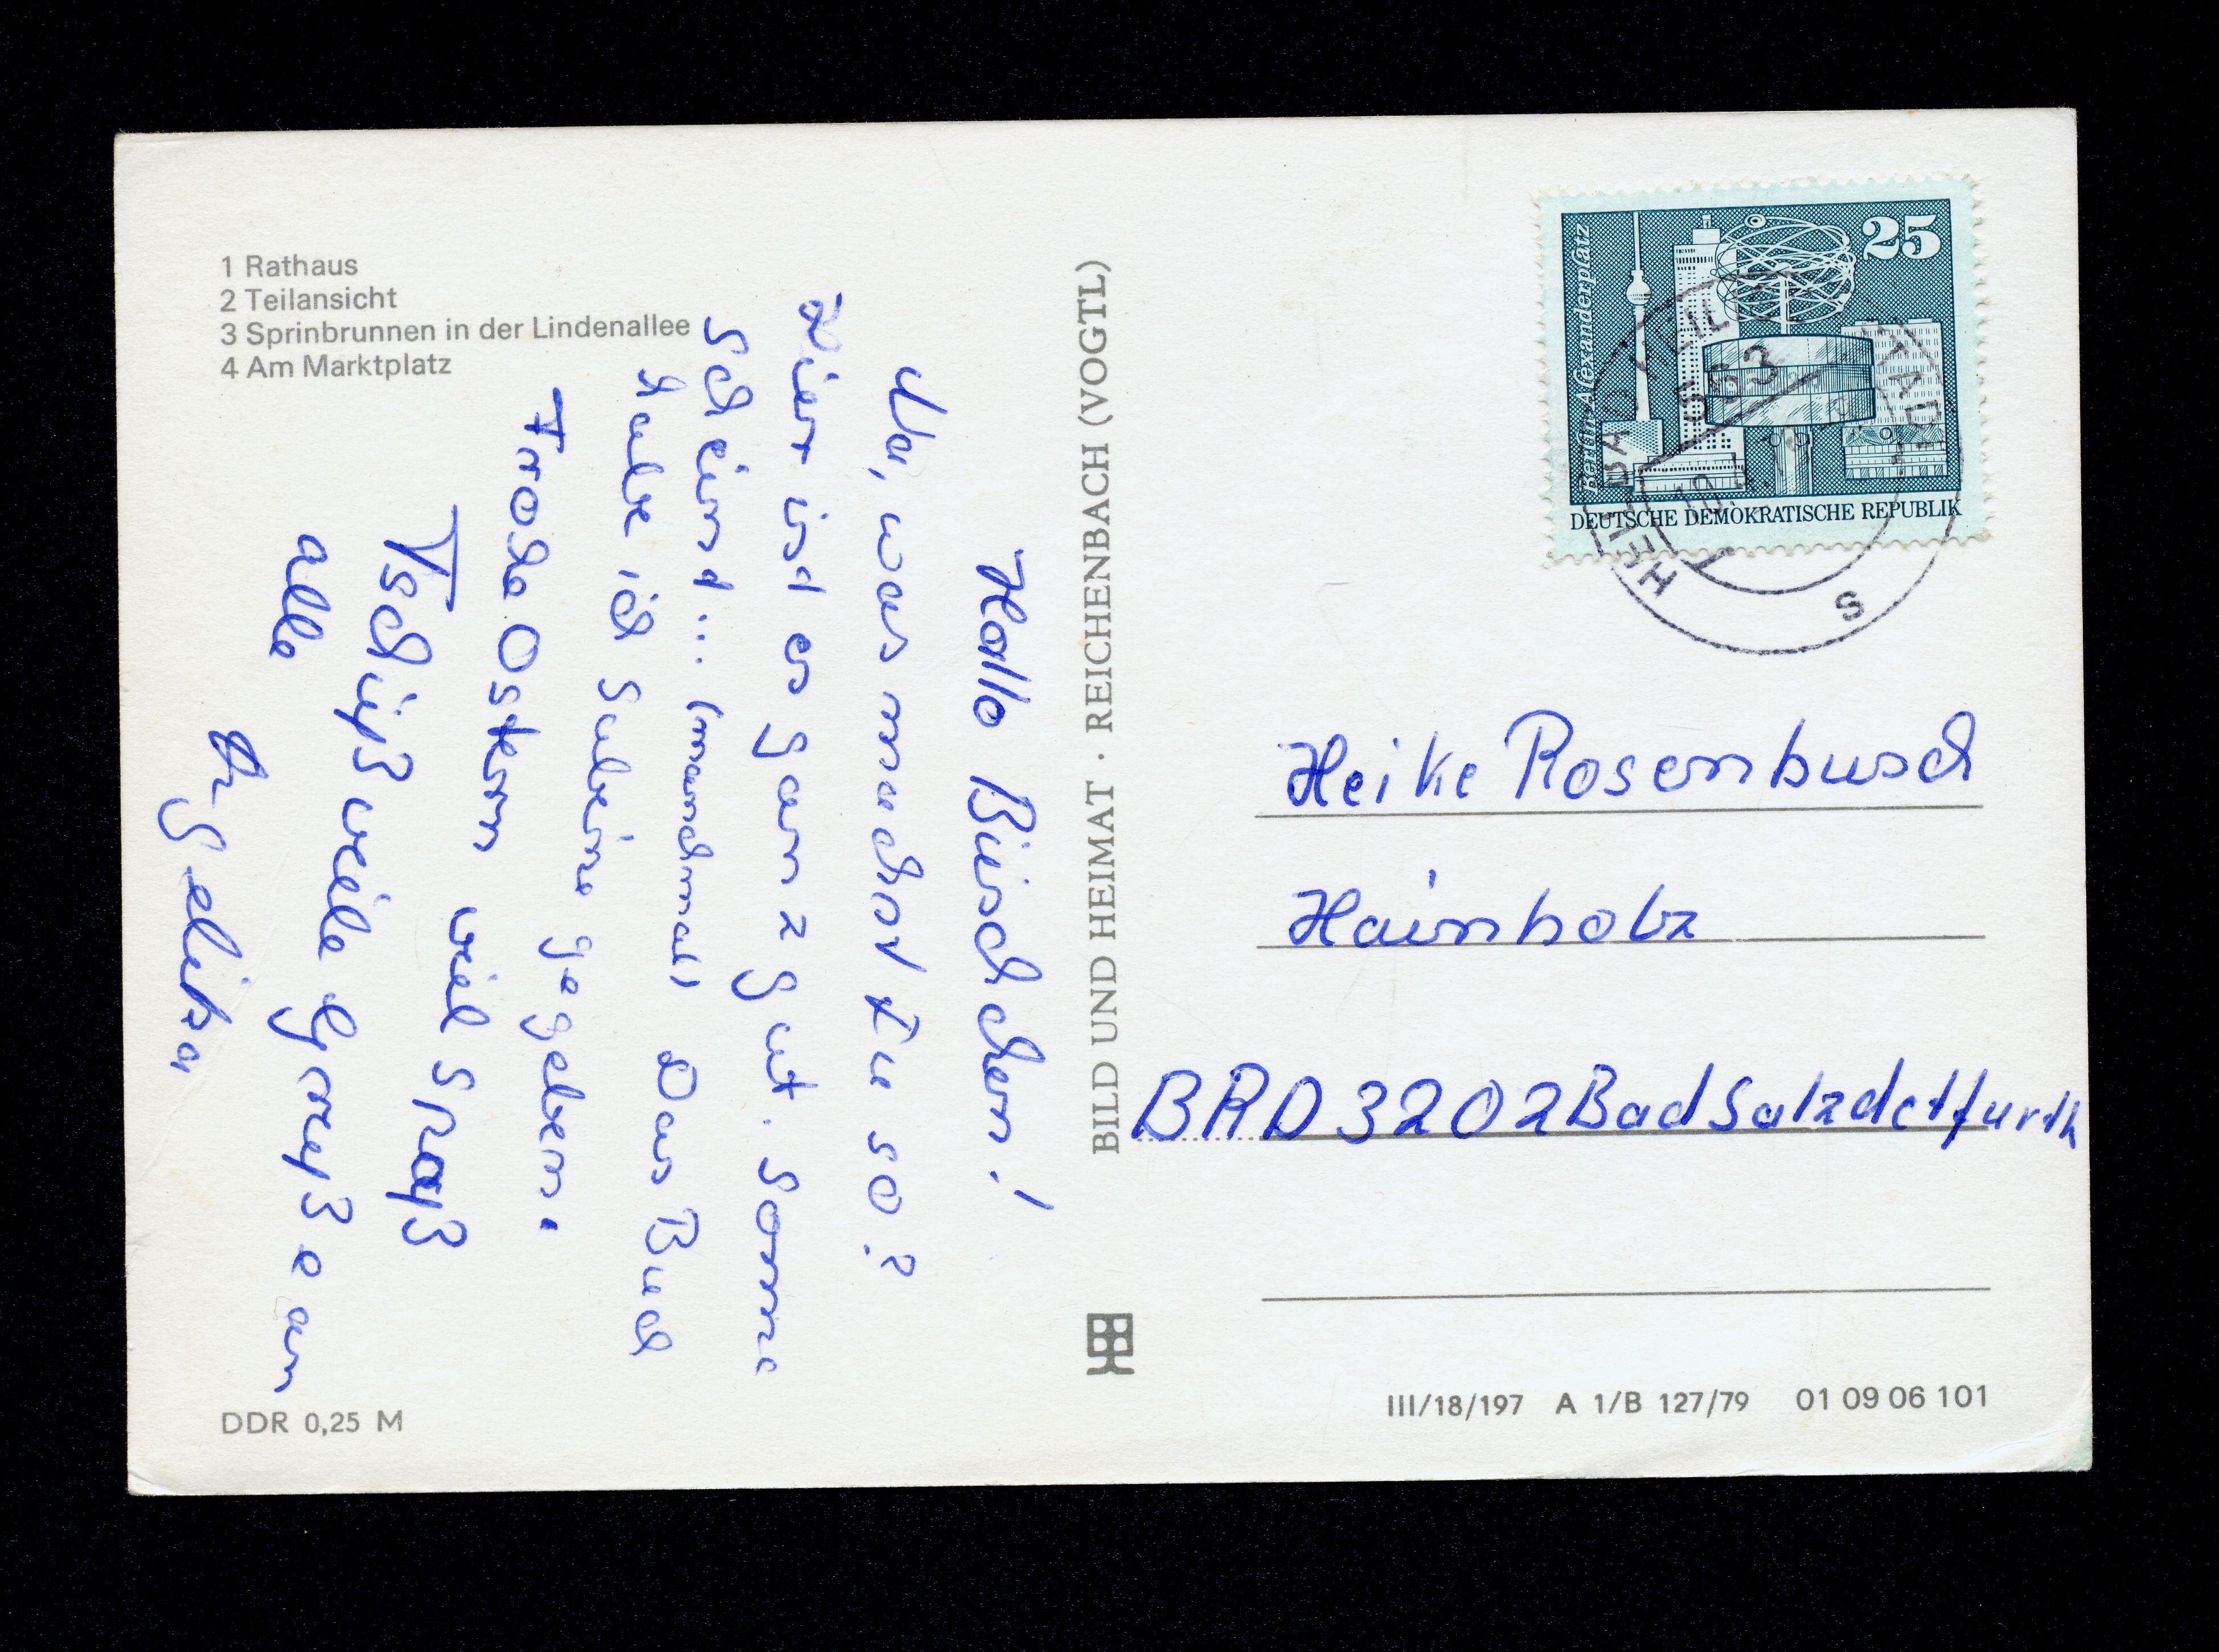 1 Rathaus
2 Teilansicht
3 Sprinbrunnen in der Lindenallee
4 Am Marktplatz
Hallo Bürschchen!
Na, was machst Du so?
Hier ist es ganz gut. Sonne
scheint... (manchmal) Das Buch
habe ich Sabine gegeben.
Frohe Ostern viel Spaß
Tschüß viele Grüße an
alle
Angelika
DDR 0,25 M
BILD UND HEIMAT · REICHENBACH (VOGTL)
Berlin, Alexanderplatz
25
DEUTSCHE DEMOKRATISCHE REPUBLIK
HEILBAD HEILIGENSTADT
563
S
Heike Rosenbusch
Hainholz
BRD 3202 Bad Salzdetfurth
III/18/197 A 1/B 127/79 01 09 06 101